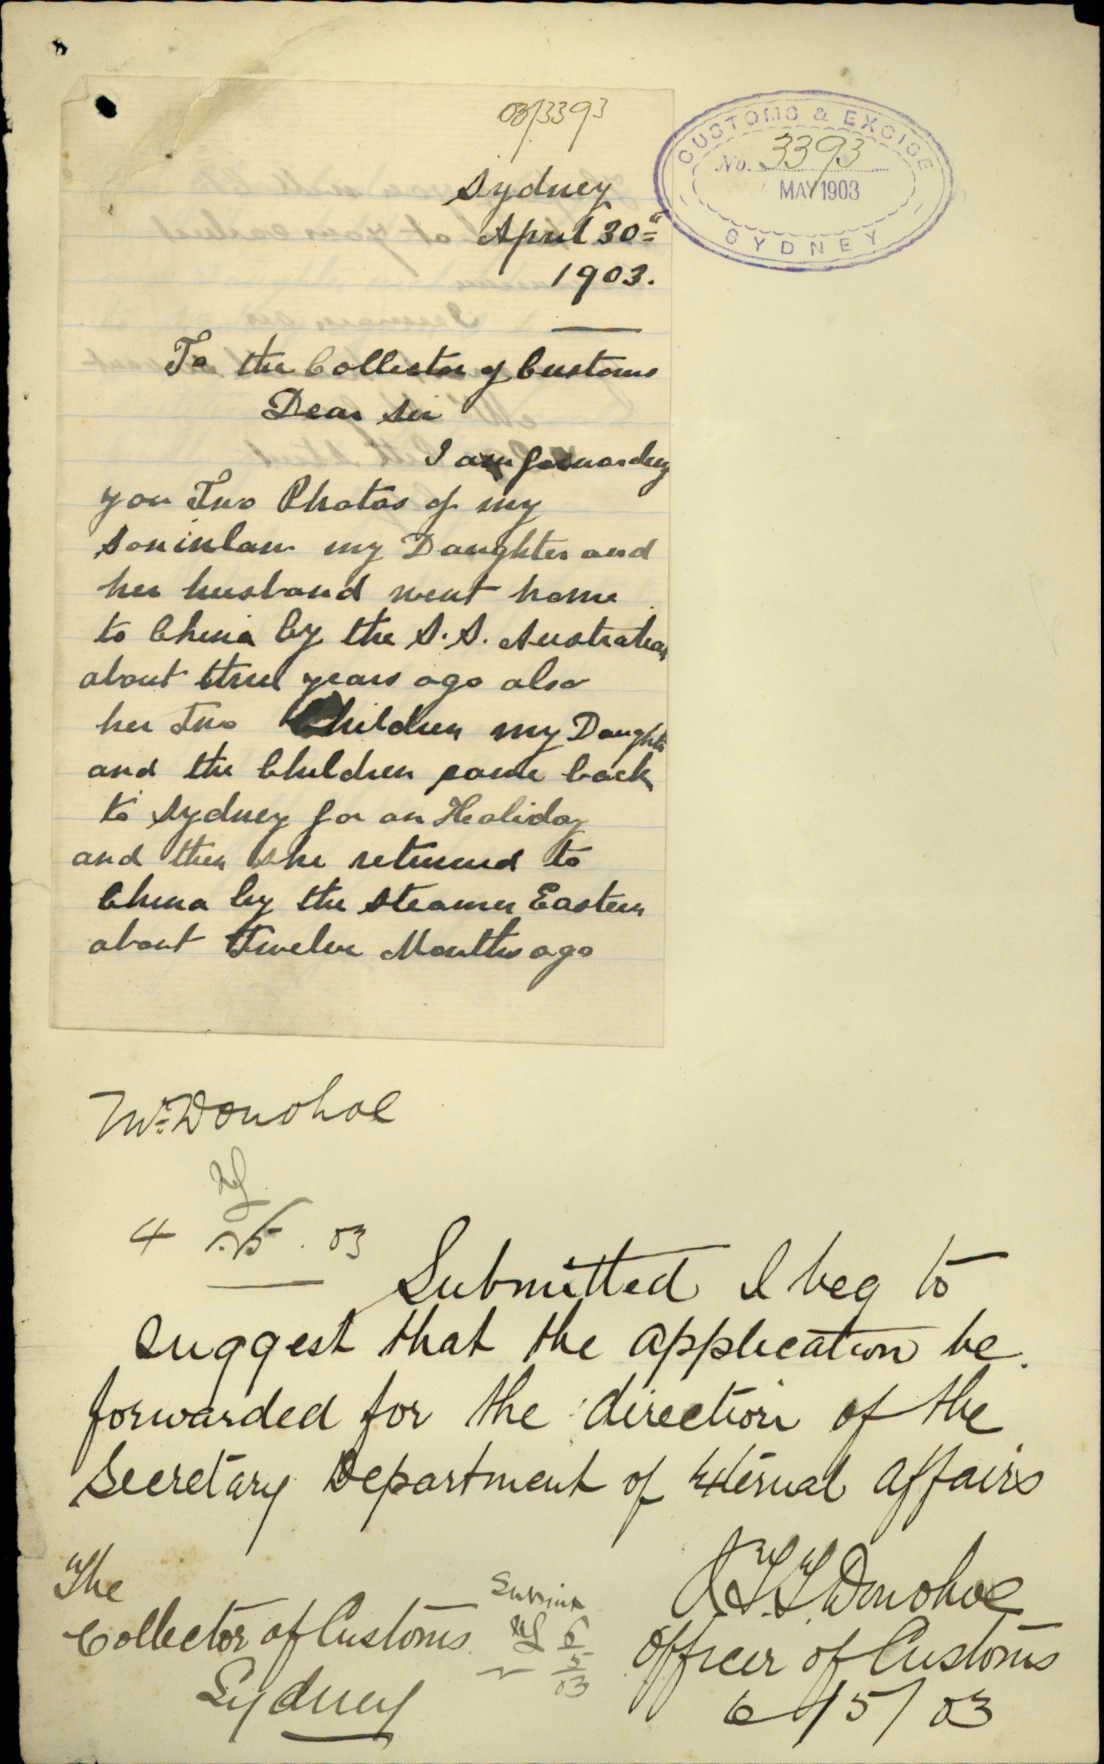 03/3393
CUSTOMS & EXCISE
No. 3393
MAY 1903
SYDNEY
Sydney
April 30th
1903.
To the Collector of Customs
Dear Sir
I am forwarding
you Two Photos of my
soninlaw my Daughter and
her husband went home
to China by the S.S. Australian
about three years ago also
her Two Children my Daughter
and the Children came back
to Sydney for an Holiday
and then she returned to
China by the steamer Eastern
about Twelve Months ago
Mr Donohoe
4 . 5 . 03
Submitted I beg to
suggest that the application be
forwarded for the direction of the
Secretary Department of External Affairs
J.T.T. Donohoe
Officer of Customs
6/5/03
The
Collector of Customs
Sydney
6
5
03